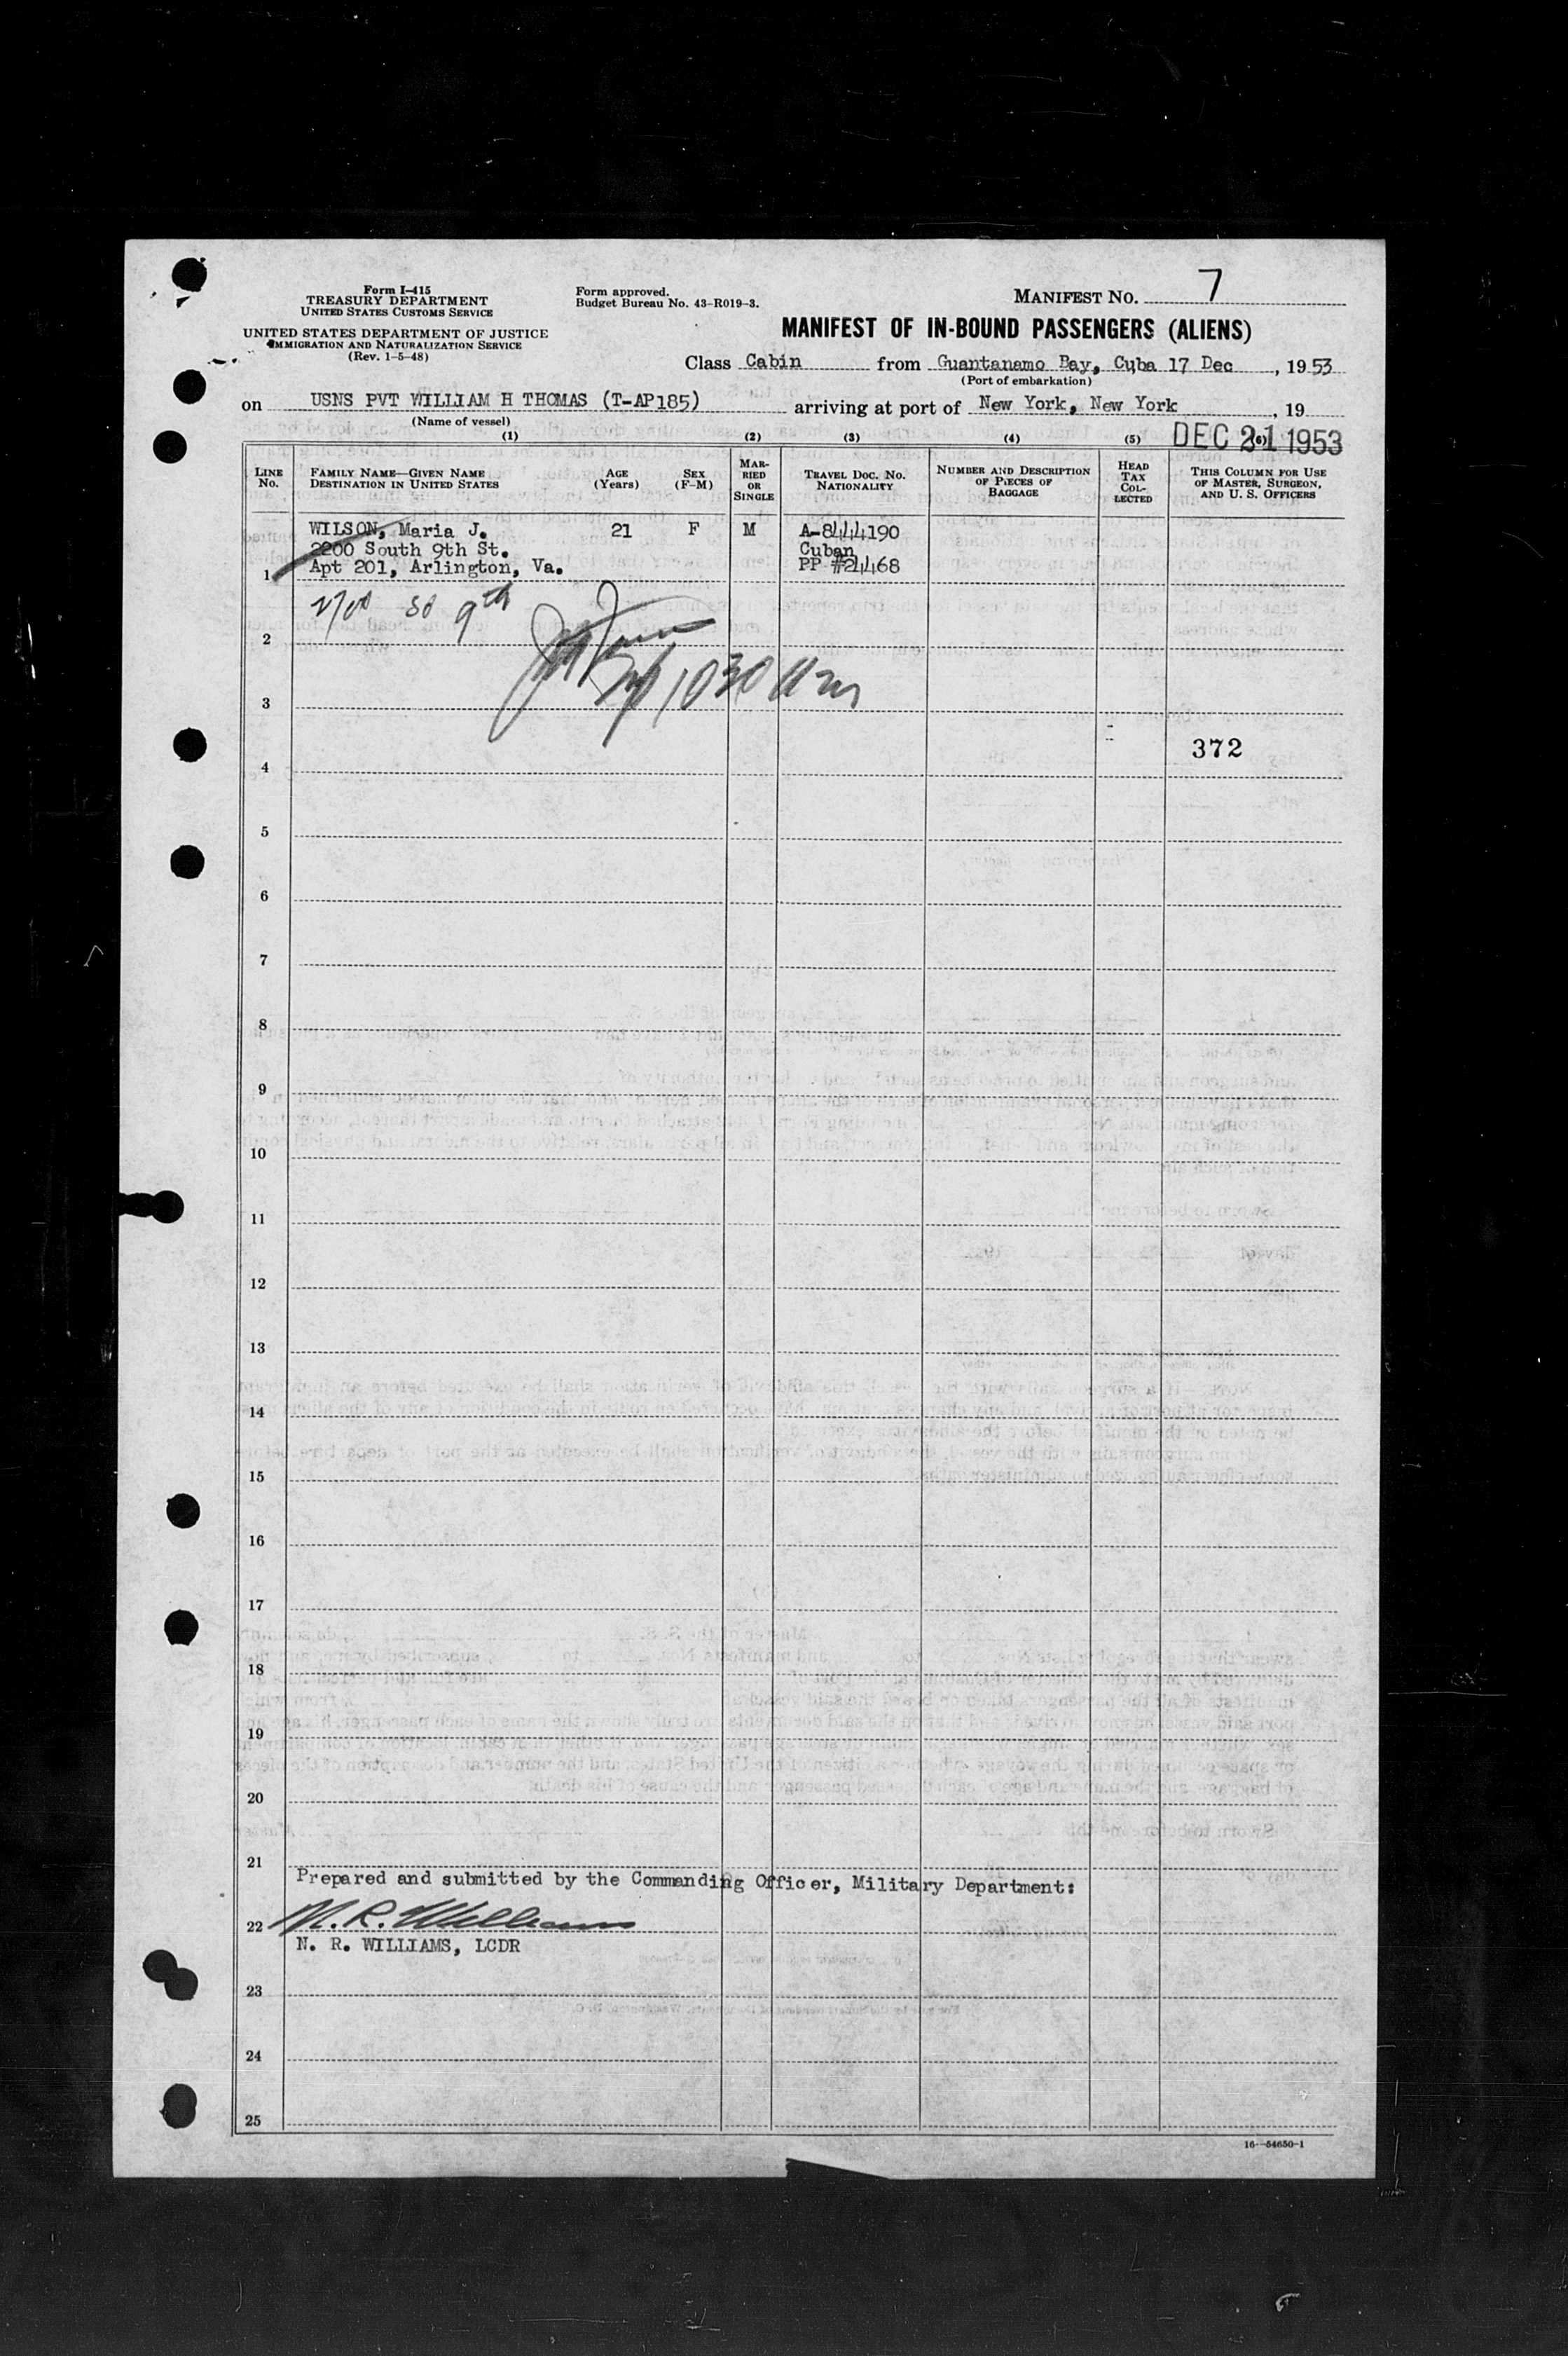 Form I-415
TREASURY DEPARTMENT
UNITED STATES CUSTOMS SERVICE
UNITED STATES DEPARTMENT OF JUSTICE
IMMIGRATION AND NATURALIZATION SERVICE
(Rev. 1-5-48)
Form approved.
Budget Bureau No. 43-R019-3.
MANIFEST NO. 7
MANIFEST OF IN-BOUND PASSENGERS (ALIENS)
Class Cabin from Guantanamo Bay, Cuba 17 Dec, 19 53
(Port of embarkation)
on USNS PVT WILLIAM H THOMAS (T-AP185) arriving at port of New York, New York, 19
(Name of vessel)
DEC 21 1953
(1) (2) (3) (4) (5) (6)
LINE No.
FAMILY NAME—GIVEN NAME
DESTINATION IN UNITED STATES
AGE (Years)
SEX (F-M)
MARRIED OR SINGLE
TRAVEL DOC. NO.
NATIONALITY
NUMBER AND DESCRIPTION OF PIECES OF BAGGAGE
HEAD TAX COLLECTED
THIS COLUMN FOR USE OF MASTER, SURGEON, AND U. S. OFFICERS
WILSON, Maria J. 21 F M A-8444190
2200 South 9th St. Cuban
1 Apt 201, Arlington, Va. PP #24468
2700 So 9th
2
1030 am
3
372
4
5
6
7
8
9
10
11
12
13
14
15
16
17
18
19
20
21
Prepared and submitted by the Commanding Officer, Military Department:
22 N. R. Williams
N. R. WILLIAMS, LCDR
23
24
25
16—54650-1